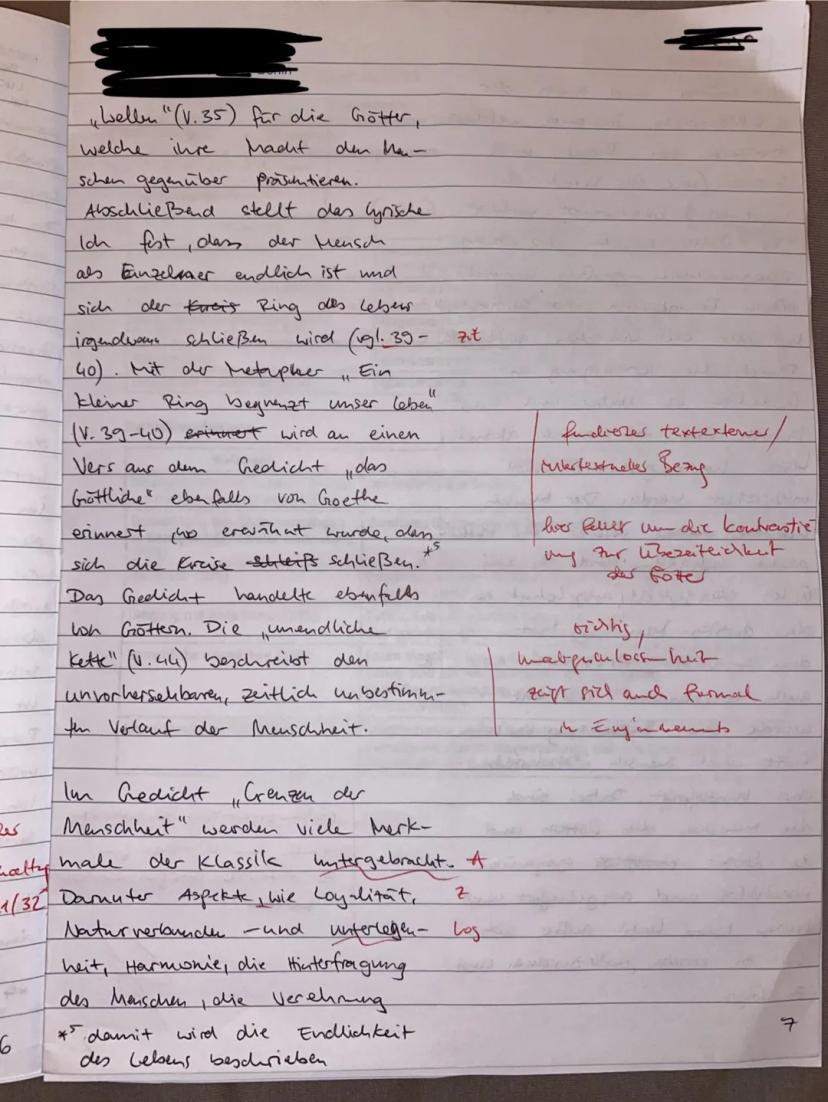 „Wellen“ (V. 35) für die Götter,
welche ihre Macht den Men-
schen gegenüber präsentieren.
Abschließend stellt das lyrische
Ich fest, dass der Mensch
als Einzelner endlich ist und
sich der Kreis Ring des Lebens
irgendwann schließen wird (vgl. 39- Zit
40). Mit der Metapher „Ein
kleiner Ring begrenzt unser Leben“
(V. 39-40) erinnert wird an einen
Vers aus dem Gedicht „das
Göttliche“ ebenfalls von Goethe
erinnert, wo erwähnt wurde, dass
sich die Kreise schließ schließen.*5
Das Gedicht handelte ebenfalls
von Göttern. Die „unendliche
Kette“ (V. 44) beschreibt den
unvorhersehbaren, zeitlich unbestimm-
ten Verlauf der Menschheit.
fundierter textexterner/
intertextueller Bezug
hier fehlt nur die Kontrastie
ung zur Überzeitlichkeit
der Götter
richtig,
Unabgeschlossenheit
zeigt sich auch formal
in Enjambements
Im Gedicht „Grenzen der
Menschheit“ werden viele Merk-
male der Klassik untergebracht. A
Darunter Aspekte, wie Loyalität, Z
Naturverbunden -und unterlegen- Log
heit, Harmonie, die Hinterfragung
des Menschen, die Verehrung
*5 damit wird die Endlichkeit
des Lebens beschrieben
1/32
7
6